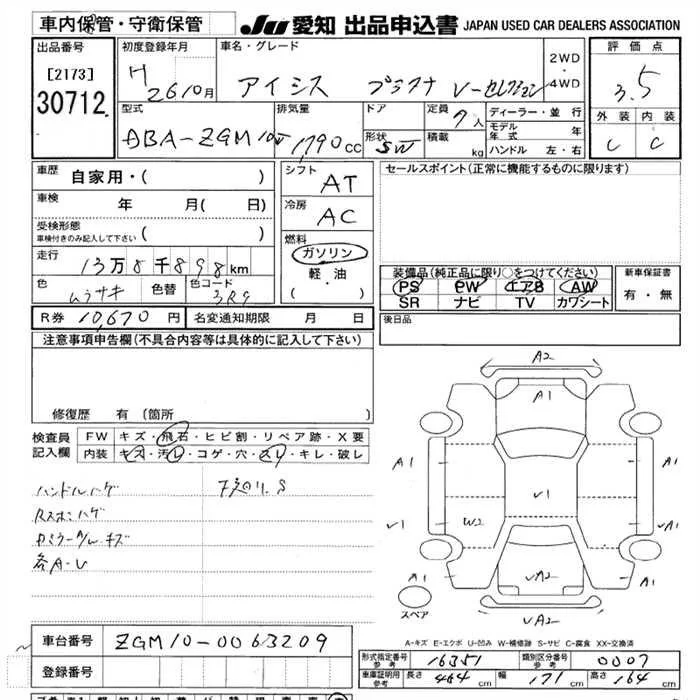 車内保管・守衛保管 JU 愛知 出品申込書 JAPAN USED CAR DEALERS ASSOCIATION
出品番号 初度登録年月 車名・グレード 2WD ・ 4WD 評価点
[2173]
30712
H 26 10月 アイシス プラタナ V-セレクション 3.5
型式 排気量 ドア 定員 ディーラー・並行 外装 内装
ABA-ZGM10W 1,790 CC 形状 SW 7人 積載 kg モデル年式 年 C C
ハンドル 左・右
車歴 自家用・( ) シフト AT セールスポイント(正常に機能するものに限ります)
車検 年 月( 日) 冷房 AC
受検形態 車検付きのみ記入して下さい ( )
燃料 ガソリン 軽油 ・( )
走行 13万8千898km
色 ムラサキ 色替 色コード 3R9
装備品(純正品に限り○をつけてください) 新車保証書
PS PW エアB AW 有・無
SR ナビ TV カワシート
R券 10,670 円 名変通知期限 月 日 後日品
注意事項申告欄(不具合内容等は具体的に記入して下さい)
修復歴 有 (箇所
検査員記入欄 FW キズ・飛石・ヒビ割・リペア跡・X要
内装 キズ・汚レ・コゲ・穴・スレ・キレ・破レ
ハンドルハゲ
各A-U
A2
A1
A1 A1
V1 V1 V1
W2
A1 VA2 A1
VA2
スペア
A-キズ E-エクボ U-凹み W-補修跡 S-サビ C-腐食 XX-交換済
車台番号 ZGM10-0063209
登録番号
形式指定番号 参考 16351 類別区分番号 参考 0007
車庫証明用 参考 長さ 464cm 幅 171cm 高さ 164cm